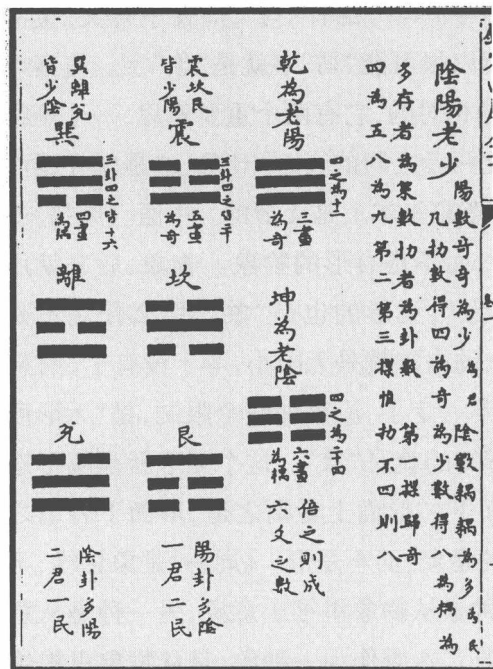 陰陽老少 陽數奇奇為少為君 陰數耦耦為多為民
凡扐數得四為奇為少數得八為耦為
多存者為策數扐者為卦數 第一揲歸奇
四為五八為九第二第三揲惟扐不四則八
乾為老陽
一之為十二
三畫
為奇
坤為老陰
四之為二十四
六畫
為耦
倍之則成
六爻之數
震坎艮
皆少陽
震
三卦四之皆二十
五畫
為奇
坎
艮
陽卦多陰
一君二民
巽離兌
皆少陰
巽
三卦四之皆十六
四畫
為耦
離
兌
陰卦多陽
二君一民